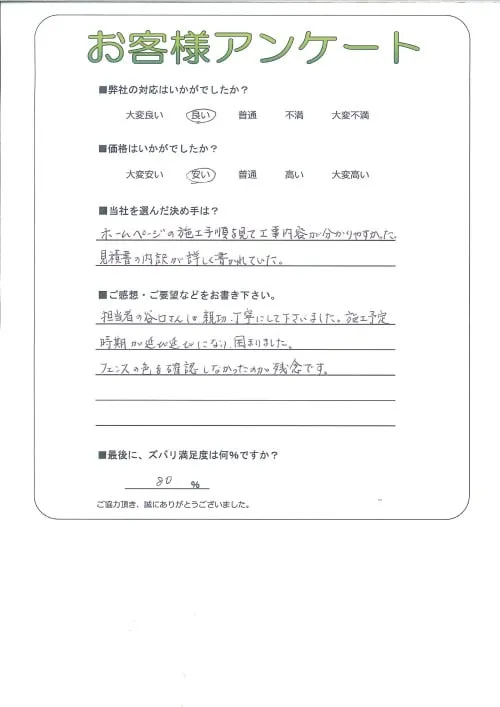 お客様アンケート
■弊社の対応はいかがでしたか？
大変良い 良い 普通 不満 大変不満
■価格はいかがでしたか？
大変安い 安い 普通 高い 大変高い
■当社を選んだ決め手は？
ホームページの施工手順を見て工事内容が分かりやすかった。
見積書の内訳が詳しく書かれていた。
■ご感想・ご要望などをお書き下さい。
担当者の谷口さんは親切、丁寧にして下さいました。施工予定
時期が延び延びになり、困まりました。
フェンスの色を確認しなかったのが残念です。
■最後に、ズバリ満足度は何％ですか？
80 ％
ご協力頂き、誠にありがとうございました。